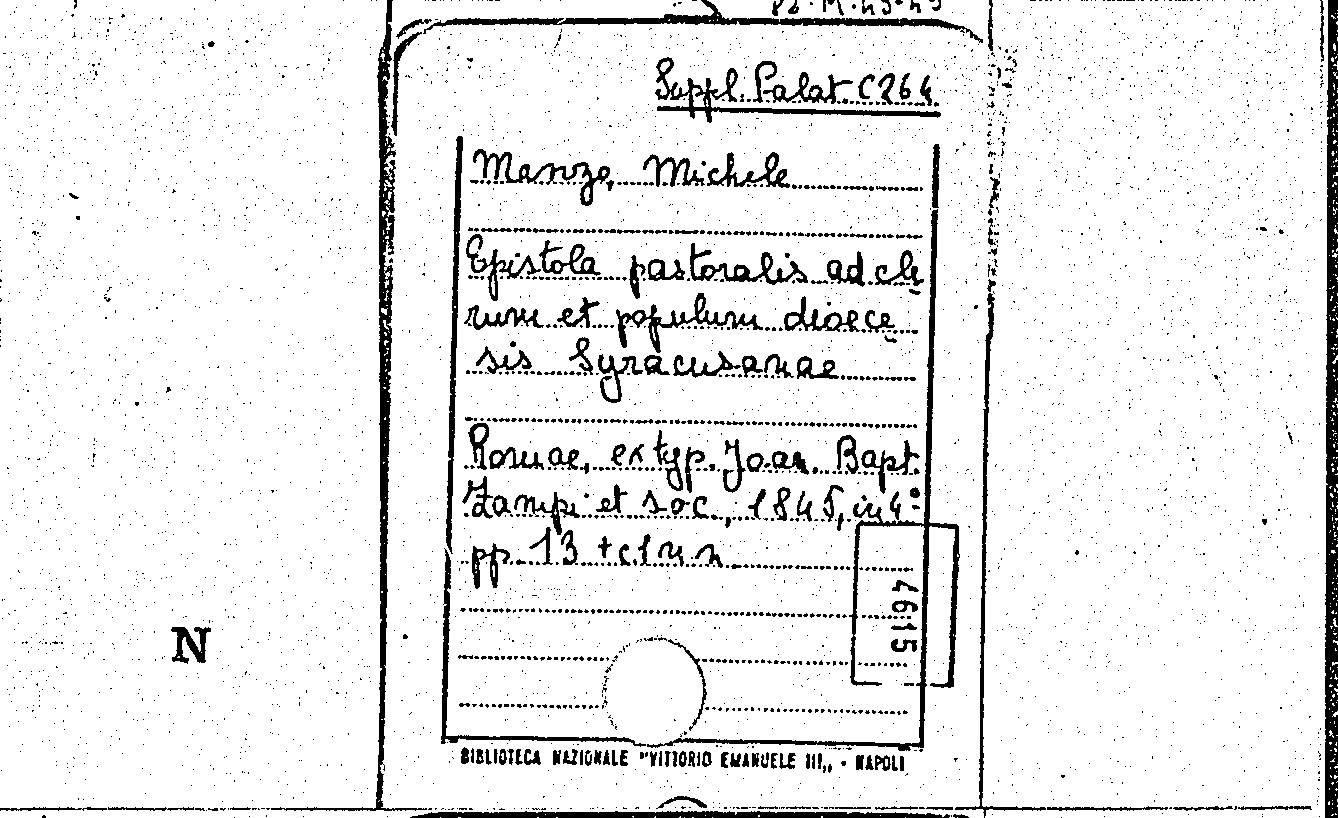 Suppl. Palat. C 264
Manzo, Michele
Epistola pastoralis ad cle
rum et populum dioece
sis Syracusanae
Romae, ex typ. Joan. Bapt.
Zampi et soc., 1845, in 4°
pp. 13 + c. 1 n. n.
4615
N
BIBLIOTECA NAZIONALE "VITTORIO EMANUELE III„ - NAPOLI